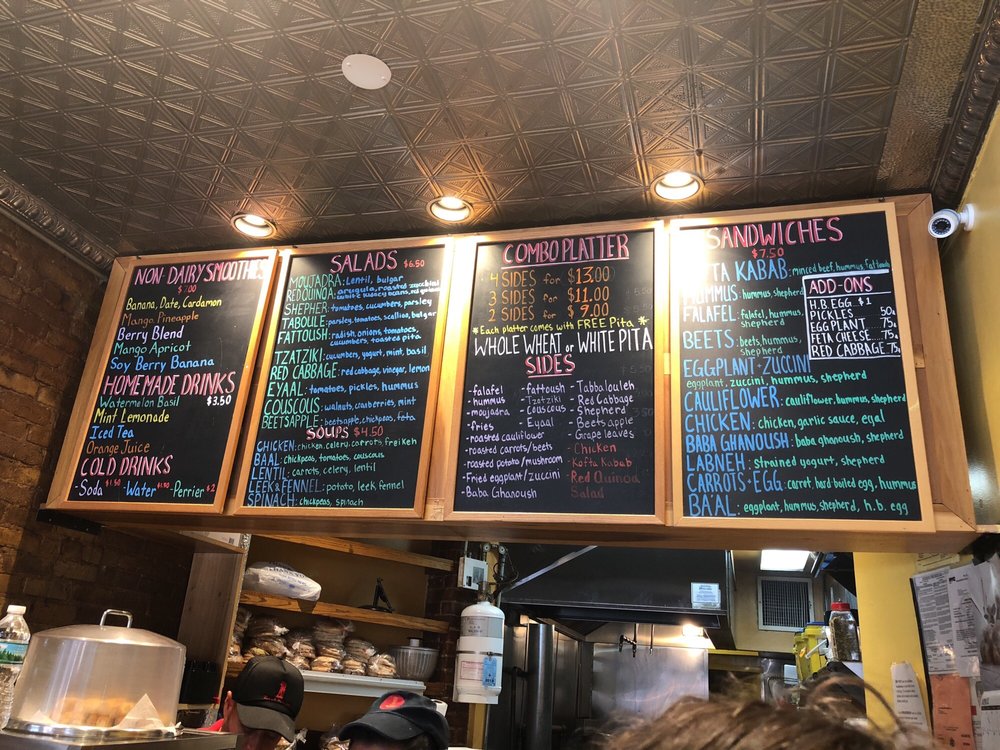 NON-DAIRY SMOOTHIES
Banana, Date, Cardamon
Mango Pineapple
Berry Blend
Mango Apricot
Soy Berry Banana
HOMEMADE DRINKS
Watermelon Basil $3.50
Mint Lemonade
Iced Tea
Orange Juice
COLD DRINKS
-Soda $1.50 -Water -Perrier $2
SALADS $6.50
MOUJADRA: Lentil, bulgar
RED QUINOA: arugula, roasted zucchini
SHEPHER: tomatoes, cucumbers, parsley
TABOULE: parsley, tomatoes, scallion, bulgar
FATTOUSH: radish, onions, tomatoes,
cucumbers, toasted pita
TZATZIKI: cucumbers, yogurt, mint, basil
RED CABBAGE: red cabbage, vinegar, lemon
EYAAL: tomatoes, pickles, hummus
COUSCOUS: walnuts, cranberries, mint
BEETSAPPLE: beetsapple, chickpeas, feta
SOUPS $4.50
CHICKEN: chicken, celery, carrots, freiken
BAAL: chickpeas, tomatoes, couscous
LENTIL: carrots, celery, lentil
LEEK & FENNEL: potato, leek fennel
SPINACH: chickpeas, spinach
COMBO PLATTER
4 SIDES for $13.00
3 SIDES for $11.00
2 SIDES for $9.00
*Each platter comes with FREE Pita*
WHOLE WHEAT or WHITE PITA
SIDES
- falafel
- hummus
- moujadra
- fries
- roasted cauliflower
- roasted carrots/beets
- roasted potato/mushroom
- Fried eggplant/zuccini
- Baba Ghanoush
- fattoush
- Tzatziki
- Couscous
- Eyaal
- Tabbalouleh
- Red Cabbage
- Shepherd
- Beets apple
- Grape leaves
- Chicken
- Kofta Kabab
- Red Quinoa
Salad
SANDWICHES
$7.50
KABAB: minced beef, hummus, fattoush
HUMMUS: hummus, shepherd
FALAFEL: falafel, hummus,
shepherd
BEETS: beets, hummus,
shepherd
EGGPLANT + ZUCCINI
eggplant, zuccini, hummus, shepherd
CAULIFLOWER: cauliflower, hummus, shepherd
CHICKEN: chicken, garlic sauce, eyal
BABA GHANOUSH: baba ghanoush, shepherd
LABNEH: strained yogurt, shepherd
CARROTS + EGG: carrot, hard boiled egg, hummus
BA'AL: eggplant, hummus, shepherd, h.b. egg
ADD-ONS
H.B. EGG $1
PICKLES 50¢
EGGPLANT 75¢
FETA CHEESE 75¢
RED CABBAGE 75¢